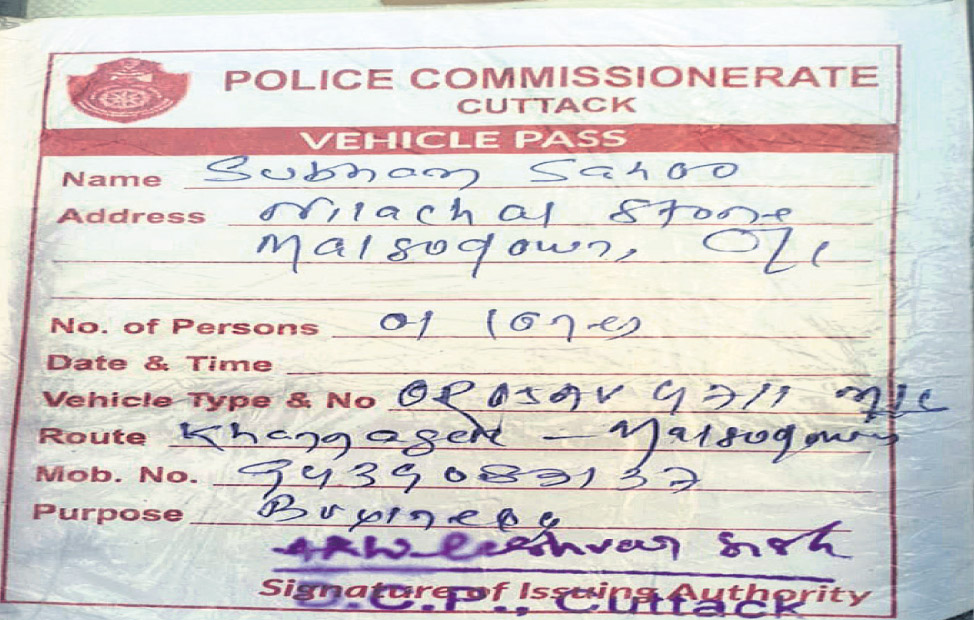 POLICE COMMISSIONERATE
CUTTACK
VEHICLE PASS
Name Subham Sahoo
Address Nilachal Store
Malgodown, CTC
No. of Persons 01 (One)
Date & Time
Vehicle Type & No OR05AV 4711 M/C
Route Khannagar - Malgodown
Mob. No. 9439083137
Purpose Business
Signature of Issuing Authority
D.C.P., Cuttack